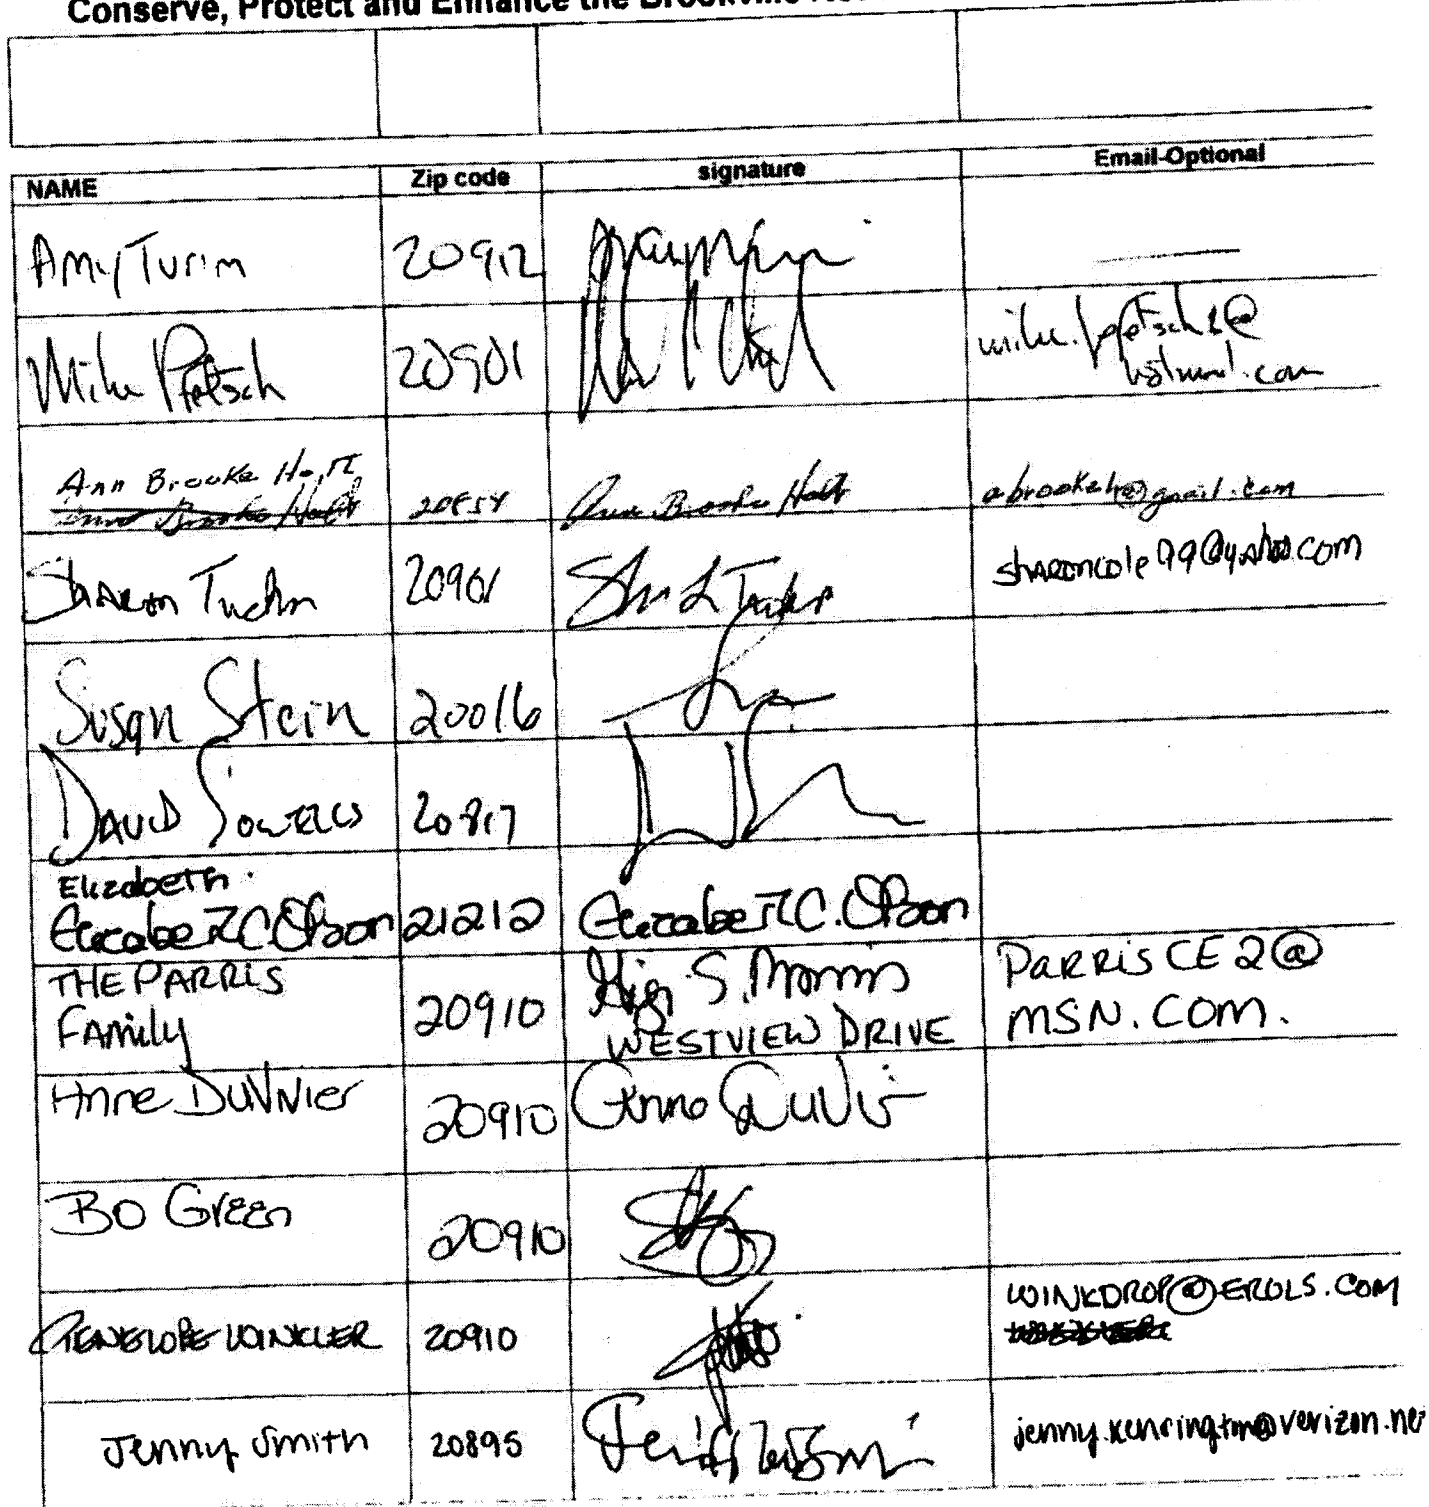 Conserve, Protect and Enhance the Brookville
NAME Zip code signature Email-Optional
Amy Turim 20912
Mike Pfetsch 20901 mike.pfetsch1@
hotmail.com
Ann Brooke Holt
Ann Brooke Holt 20854 Ann Brooke Holt abrookeh@gmail.com
Sharon 20901 sharoncole99@yahoo.com
Susan Stein 20016
David Sowells 20817
Elizabeth
Elizabeth C. Olson 21212 Elizabeth C. Olson
THE PARRIS
Family 20910 S. Morris
WESTVIEW DRIVE
PARRiSCE2@
MSN.COM.
Anne DuVivier 20910 Anne
Bo Green 20910
PENELOPE WINKLER 20910 WINKDROP@EROLS.COM
Jenny Smith 20895 jenny.kenrington@verizon.net